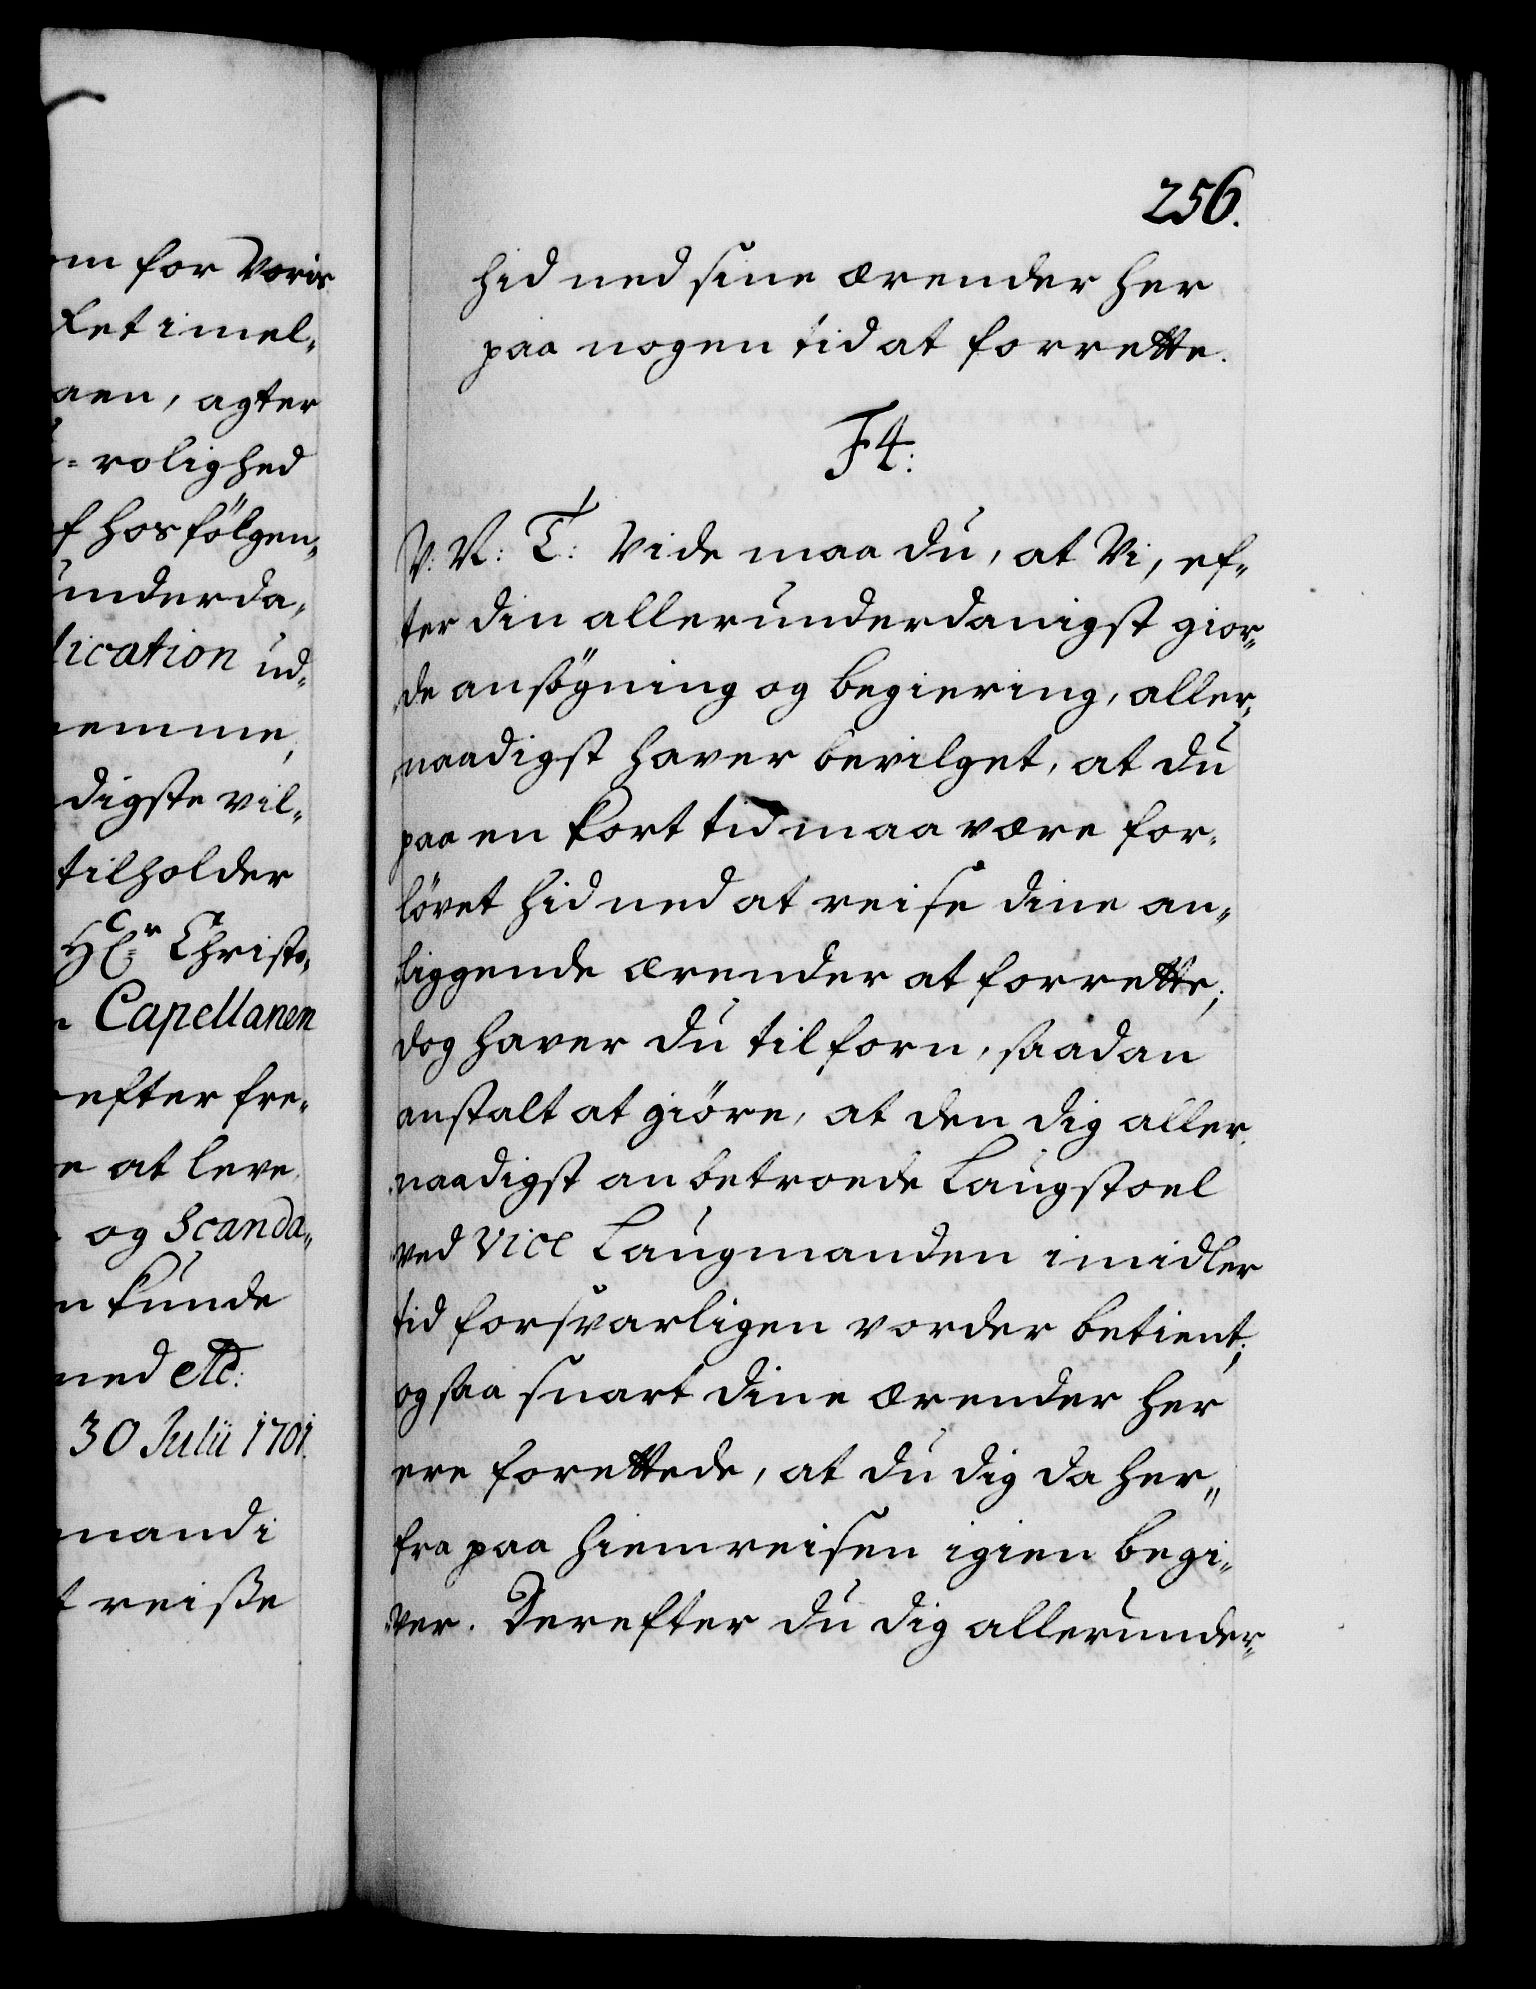 om for Voris
ket imel-
aen, agter
=rolighed
f hosfölgen-
underda-
lication ud-
emme,
digste vil-
tilholder
Hr Christo-
Capellanen
efter fre-
e at leve
og Scanda-
n kunde
med etc:
30 Julii 1701.
mand i
t reisse
256.
hid ned sine ærender her
paa nogen tid at forrette.
F4:
V: V: T: Vide maa du, at Vi, ef-
ter din allerunderdanigst gior-
de ansögning og begiering, aller-
naadigst haver bevilget, at du
paa en kort tid maa være for-
lövet hid ned at reise dine an-
liggende ærender at forrette;
dog haver du tilforn, saadan
anstalt at giöre, at den dig aller-
naadigst anbetroede Laugstoel
ved Vice Laugmanden imidler
tid forsvarligen vorder betient;
og saa snart dine ærender her
ere forettede, at du dig da her-
fra paa hiemreisen igien begi-
ver. Derefter du dig allerunder-